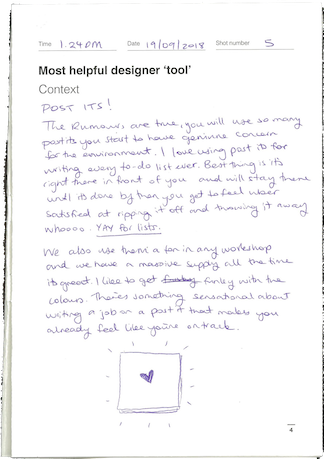 Time 1.24PM Date 19/09/2018 Shot number 5
Most helpful designer 'tool'
Context
POST ITS!
The Rumours are true, you will use so many
postits you start to have geniune concern
for the environment. I love using post its for
writing every to-do list ever. Best thing is its
right there in front of you and will stay there
until its done by then you get to feel uber
satisfied at ripping it off and throwing it away
whoooo. YAY for lists.
We also use them a ton in any workshop
and we have a massive supply all the time
its great. I like to get funky with the
colours. Theres something sensational about
writing a job on a post it that makes you
already feel like you're on track.
4